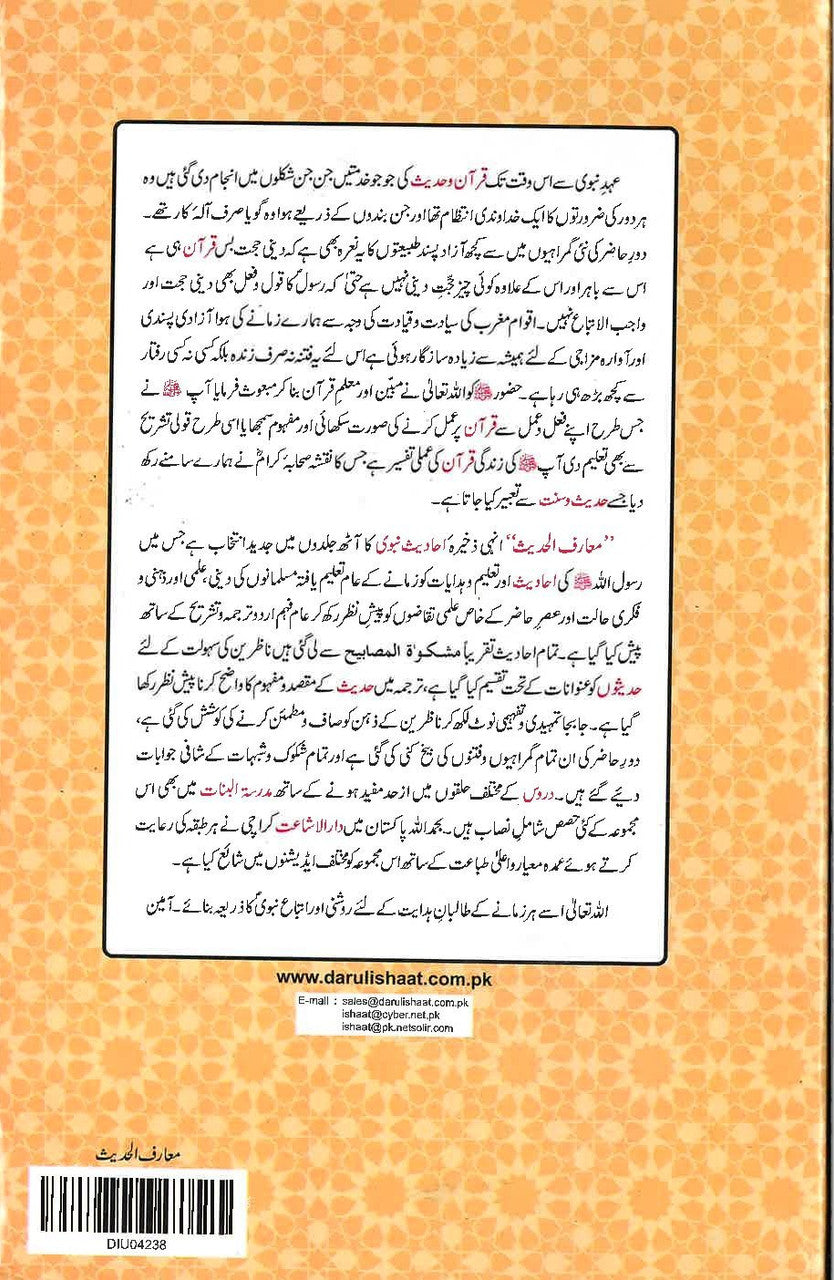 عہدِ نبوی سے اس وقت تک قرآن وحدیث کی جو جو خدمتیں جن جن شکلوں میں انجام دی گئی ہیں وہ
ہر دور کی ضرورتوں کا ایک خداوندی انتظام تھا اور جن بندوں کے ذریعے ہوا وہ گویا صرف آلۂ کار تھے۔
دورِ حاضر کی نئی گمراہیوں میں سے کچھ آزاد پسند طبیعتوں کا یہ نعرہ بھی ہے کہ دینی حجت بس قرآن ہی ہے
اس سے باہر اور اس کے علاوہ کوئی چیز حجّتِ دینی نہیں ہے حتیٰ کہ رسولؐ کا قول وفعل بھی دینی حجت اور
واجب الاتباع نہیں۔ اقوام مغرب کی سیادت وقیادت کی وجہ سے ہمارے زمانے کی ہوا آزادی پسندی
اور آوارہ مزاجی کے لئے ہمیشہ سے زیادہ سازگار ہوئی ہے اس لئے یہ فتنہ نہ صرف زندہ بلکہ کسی نہ کسی رفتار
سے کچھ بڑھ ہی رہا ہے۔ حضور ﷺ کو اللہ تعالیٰ نے مبیّن اور معلمِ قرآن بنا کر مبعوث فرمایا آپ ﷺ نے
جس طرح اپنے فعل وعمل سے قرآن پر عمل کرنے کی صورت سکھائی اور مفہوم سمجھایا اسی طرح قولی تشریح
سے بھی تعلیم دی آپ ﷺ کی زندگی قرآن کی عملی تفسیر ہے جس کا نقشہ صحابہ کرامؓ نے ہمارے سامنے رکھ
دیا جسے حدیث وسنت سے تعبیر کیا جاتا ہے۔
”معارف الحدیث“ انہی ذخیرۂ احادیث نبوی کا آٹھ جلدوں میں جدید انتخاب ہے جس میں
رسول اللہ ﷺ کی احادیث اور تعلیم وہدایات کو زمانے کے عام تعلیم یافتہ مسلمانوں کی دینی، علمی اور ذہنی و
فکری حالت اور عصرِ حاضر کے خاص علمی تقاضوں کو پیشِ نظر رکھ کر عام فہم اردو ترجمہ وتشریح کے ساتھ
پیش کیا گیا ہے۔ تمام احادیث تقریباً مشکوٰۃ المصابیح سے لی گئی ہیں ناظرین کی سہولت کے لئے
حدیثوں کو عنوانات کے تحت تقسیم کیا گیا ہے، ترجمہ میں حدیث کے مقصد ومفہوم کا واضح کرنا پیش نظر رکھا
گیا ہے۔ جابجا تمہیدی وتفہیمی نوٹ لکھ کر ناظرین کے ذہن کو صاف ومطمئن کرنے کی کوشش کی گئی ہے،
دورِ حاضر کی ان تمام گمراہیوں وفتنوں کی بیخ کنی کی گئی ہے اور تمام شکوک وشبہات کے شافی جوابات
دیئے گئے ہیں۔ دروس کے مختلف حلقوں میں ازحد مفید ہونے کے ساتھ مدرسۃ البنات میں بھی اس
مجموعہ کے کئی حصص شاملِ نصاب ہیں۔ بحمد اللہ پاکستان میں دارالاشاعت کراچی نے ہر طبقہ کی رعایت
کرتے ہوئے عمدہ معیار واعلیٰ طباعت کے ساتھ اس مجموعہ کو مختلف ایڈیشنوں میں شائع کیا ہے۔
اللہ تعالیٰ اسے ہر زمانے کے طالبانِ ہدایت کے لئے روشنی اور اتباع نبویؐ کا ذریعہ بنائے۔ آمین
www.darulishaat.com.pk
E-mail : sales@darulishaat.com.pk
ishaat@cyber.net.pk
ishaat@pk.netsolir.com
معارف الحدیث
DIU04238